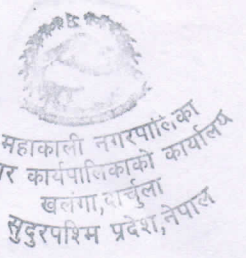 महाकाली नगरपालिका
र कार्यपालिकाको कार्यालय
खलंगा, दार्चुला
सुदुरपश्चिम प्रदेश, नेपाल